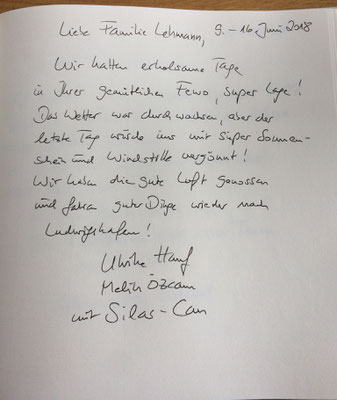 Liebe Familie Lehmann, 9. - 16 Juni 2018
Wir hatten erholsame Tage
in Ihrer gemütlichen Fewo, super Lage!
Das Wetter war durchwachsen, aber der
letzte Tag würde uns mit super Sonnen-
schein und Windstille vergönnt!
Wir haben die gute Luft genossen
und fahren guter Dinge wieder nach
Ludwigshafen!
Ulrike Hauf
Melih Özcan
mit Silas-Can